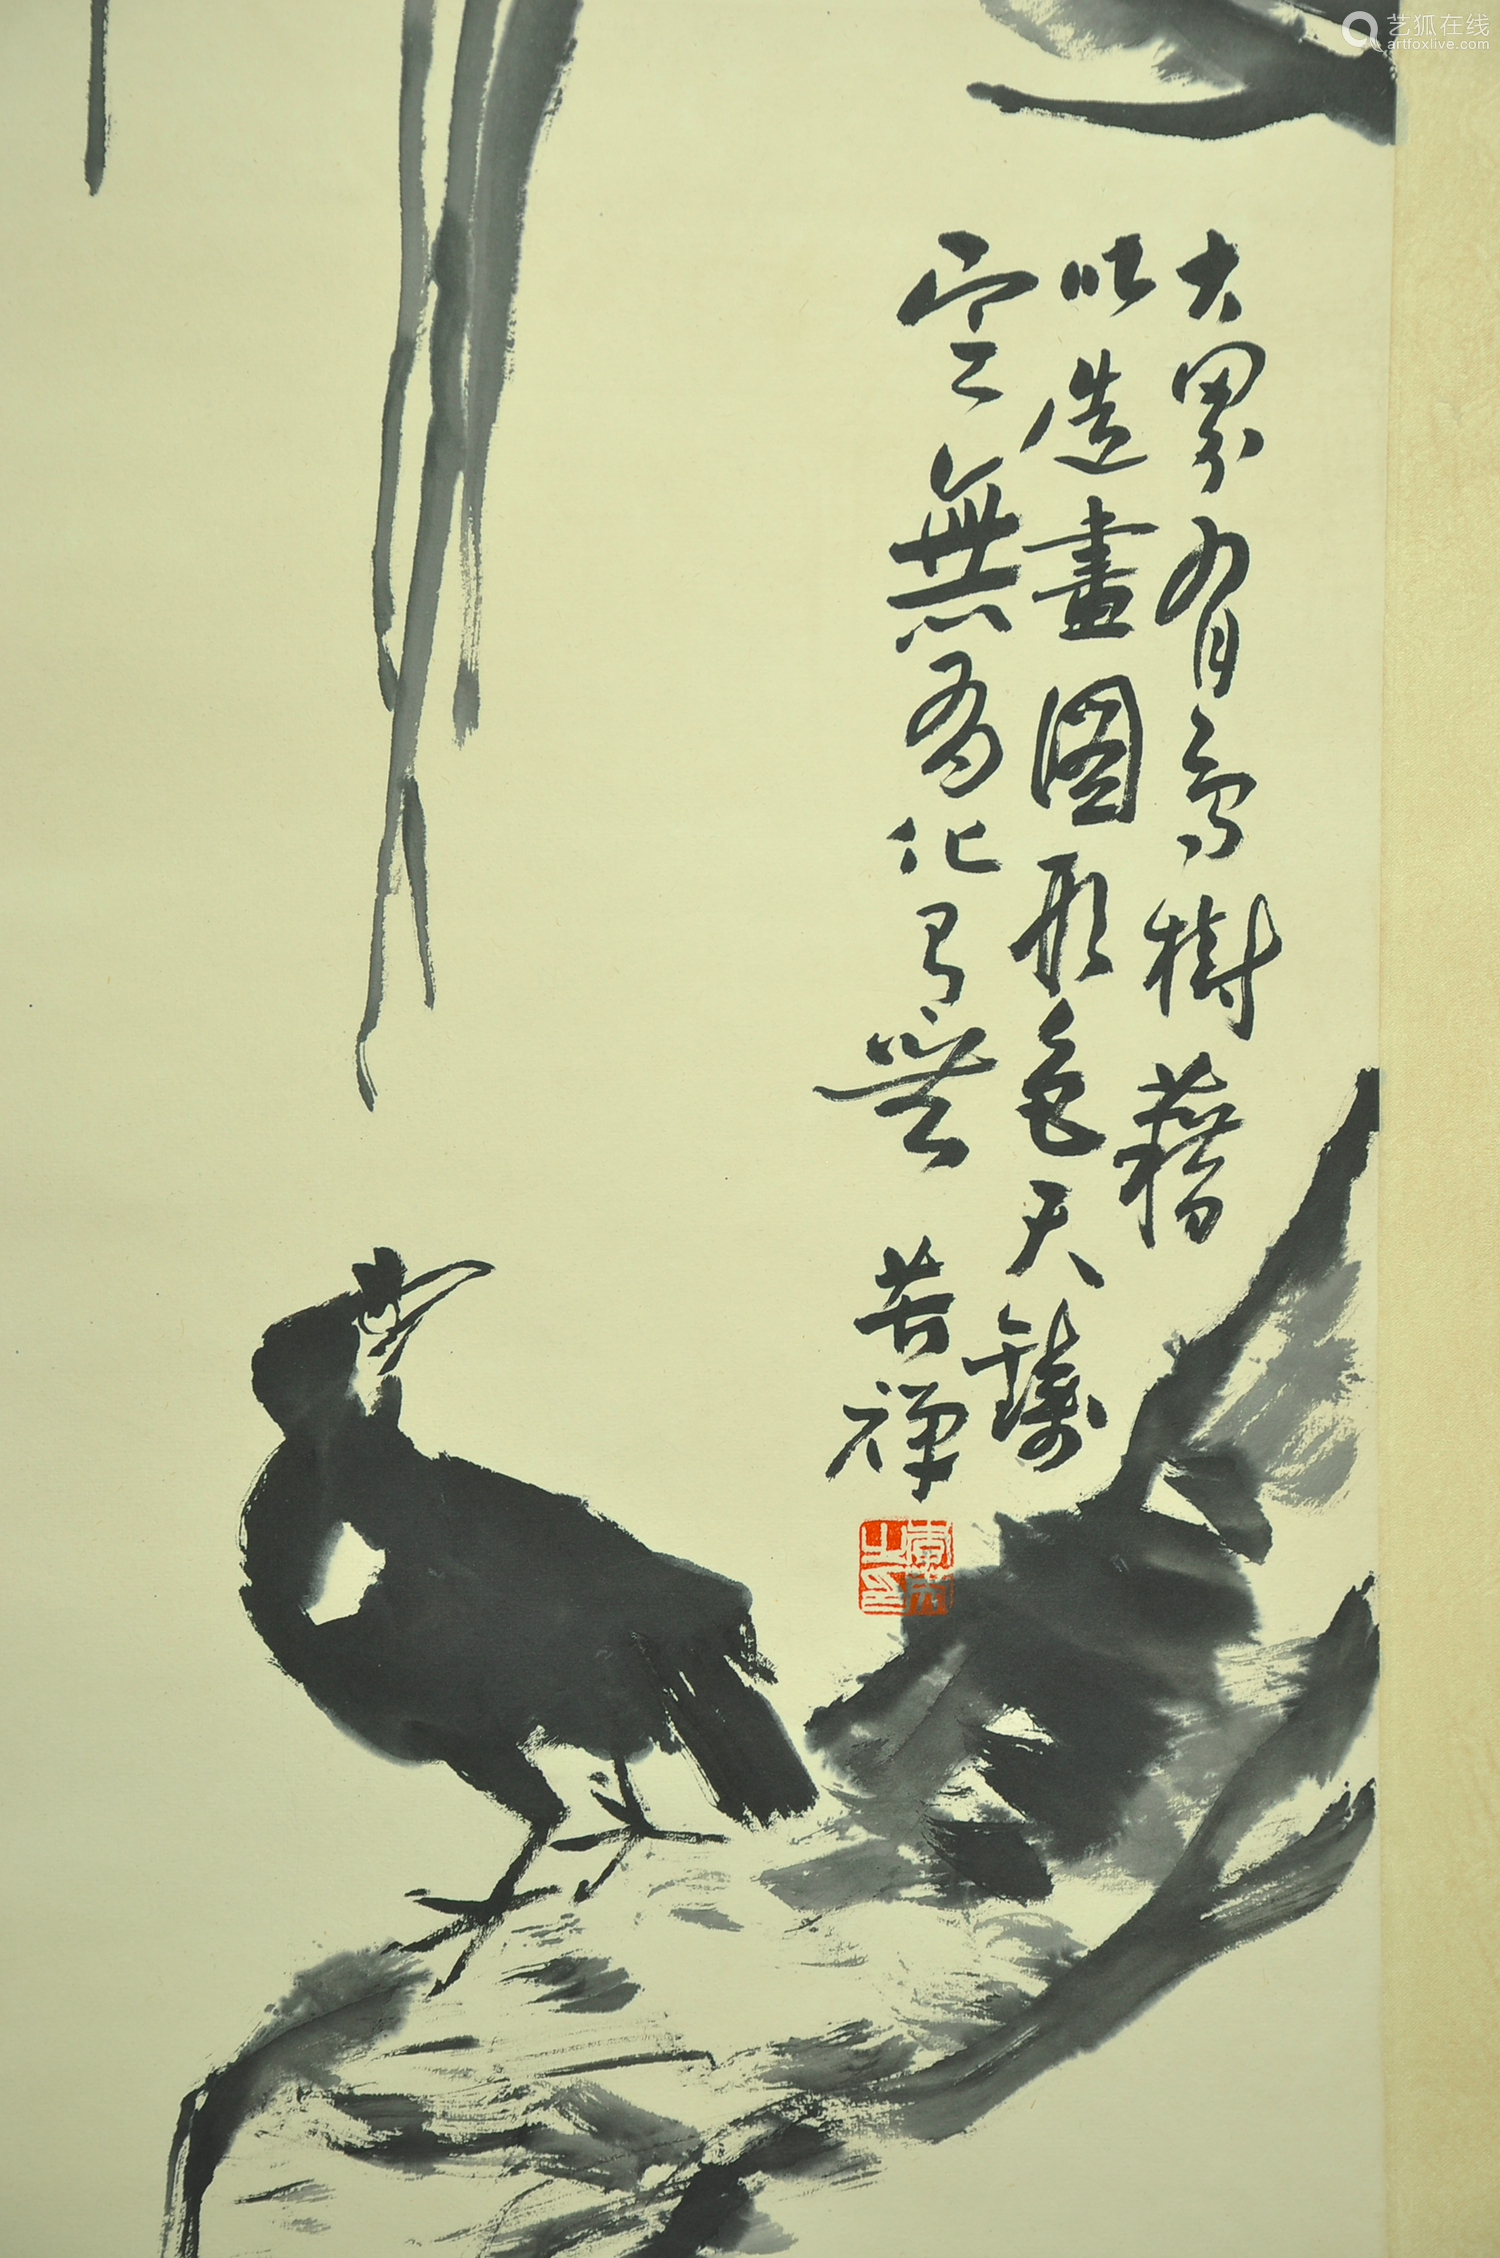 大界有鳥樹藉
以造畫圖形色天鑄
空無為化有無
苦禪
艺狐在线
artfoxlive.com